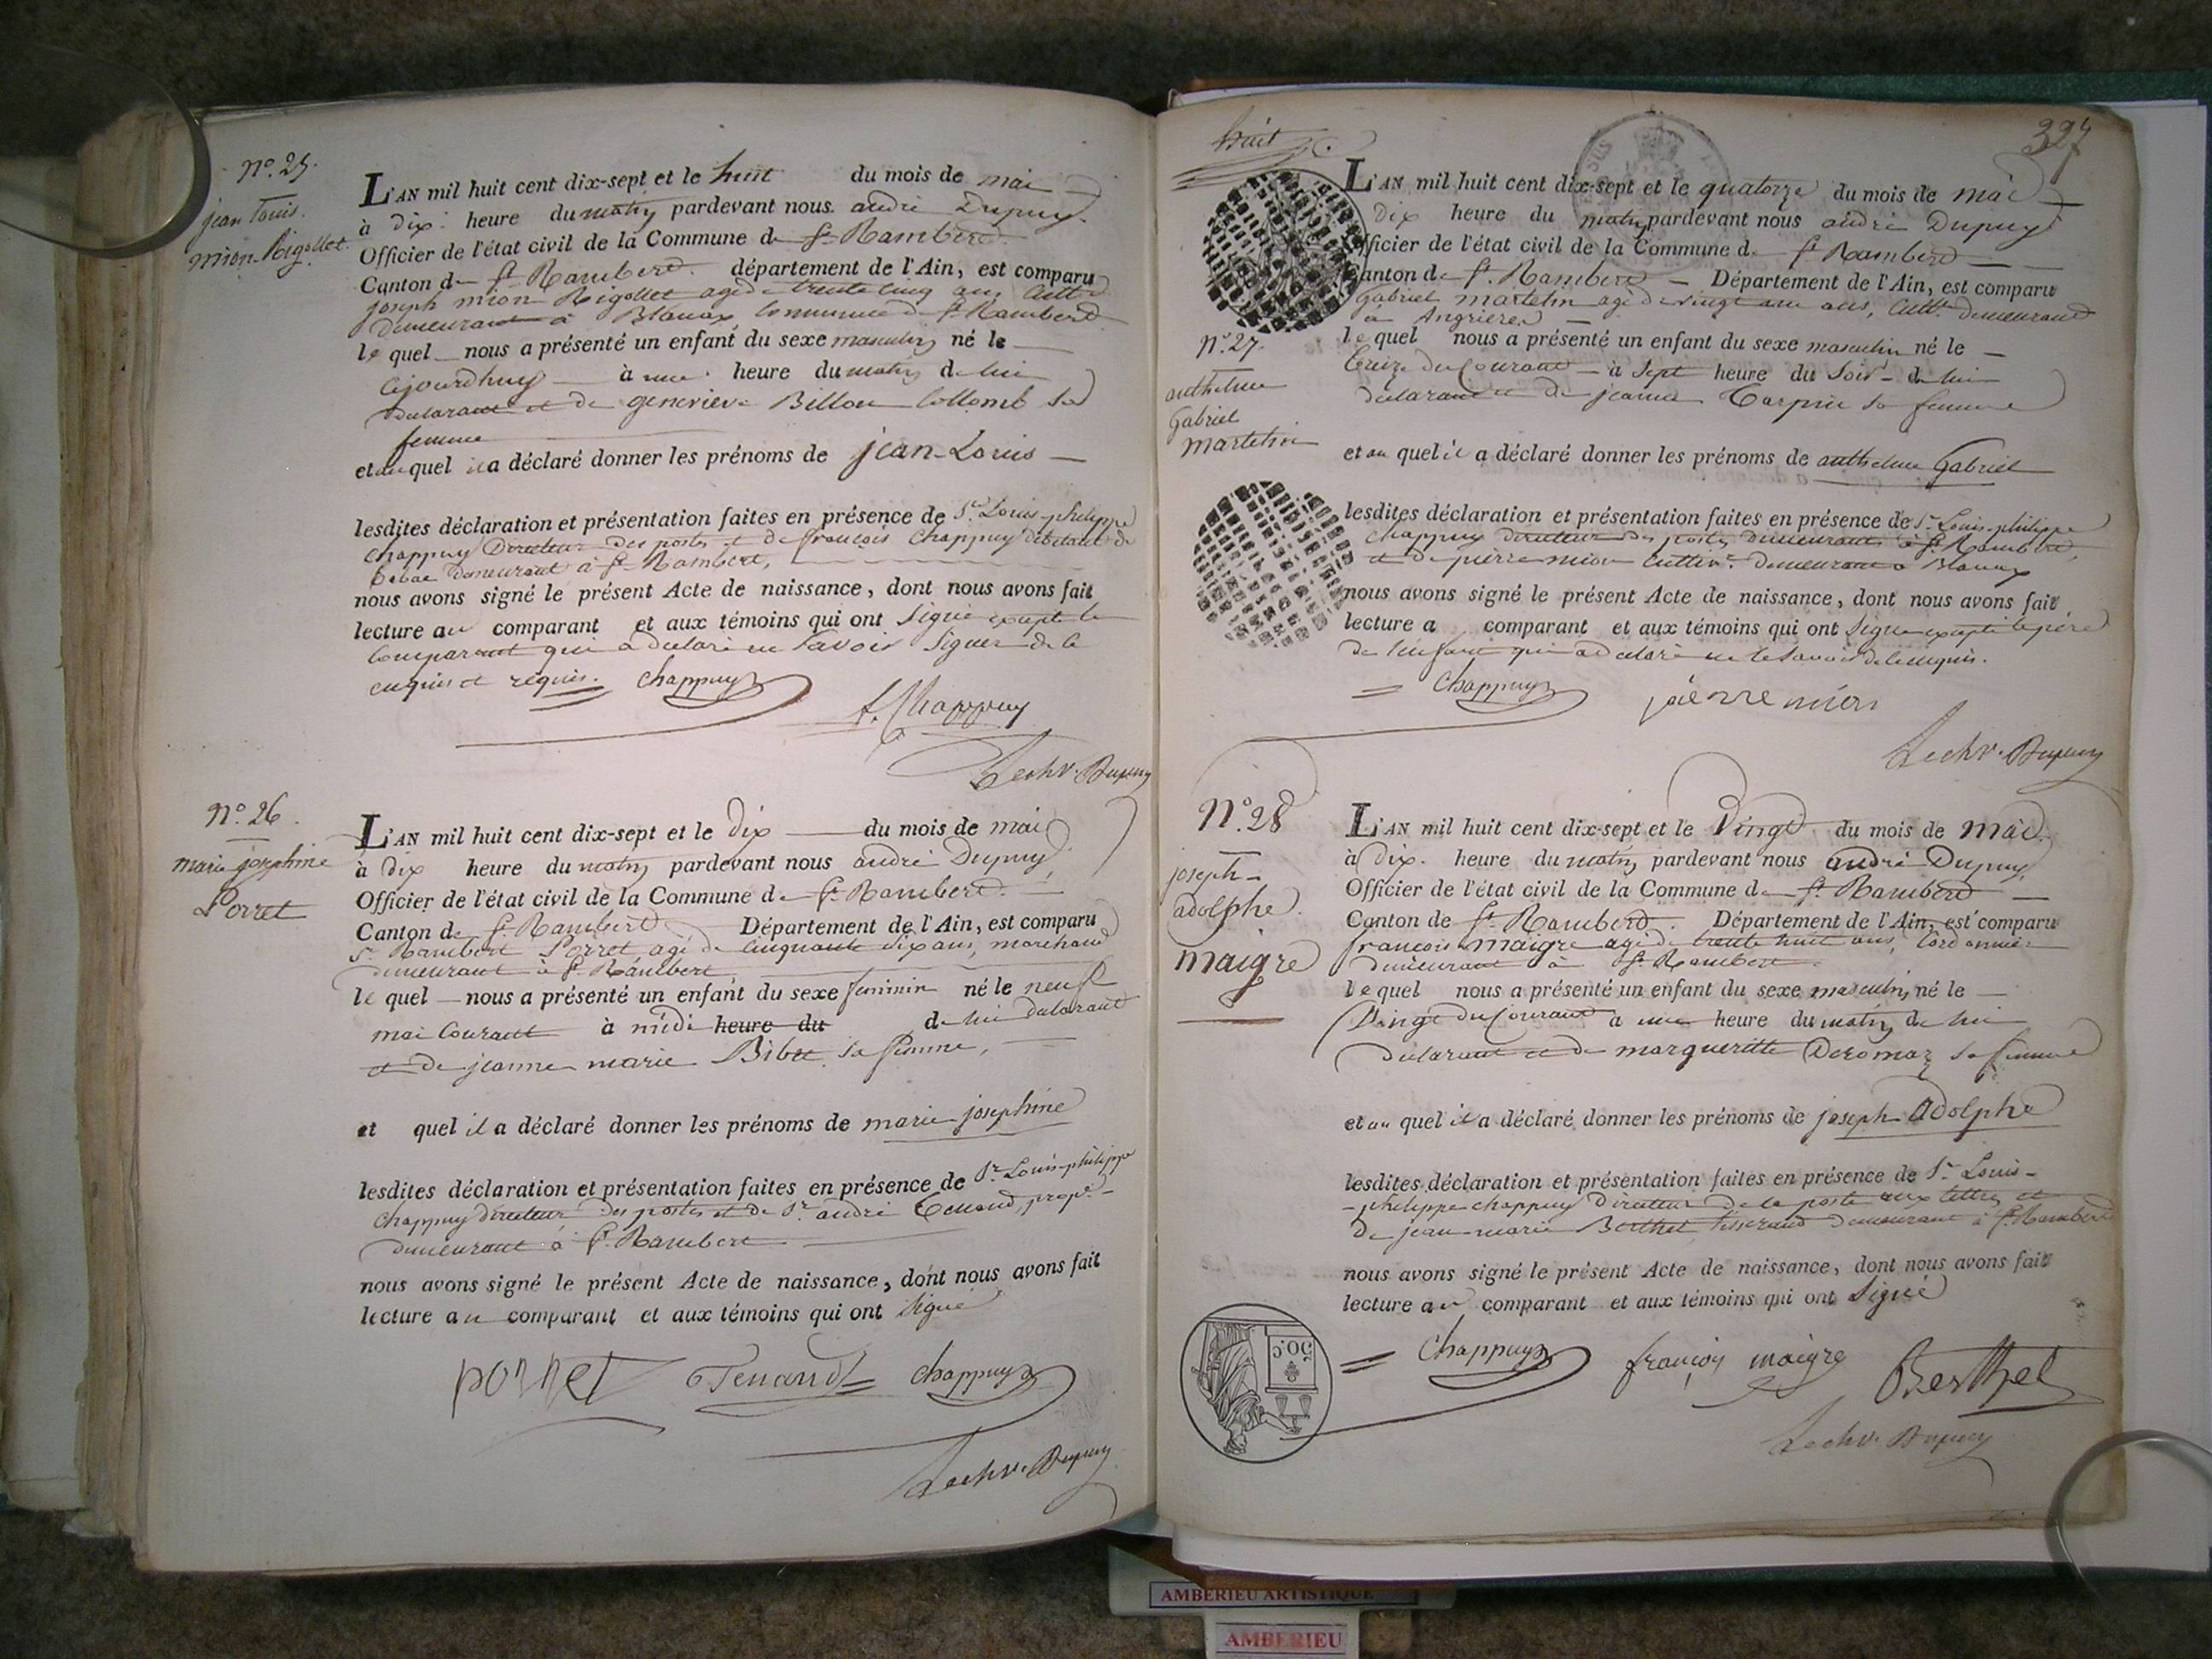 n.° 25.
jean Louis.
mion-Rigollet.
L'AN mil huit cent dix-sept et le huit du mois de mai
à dix heure du matin pardevant nous andré Dupuy.
Officier de l'état civil de la Commune de St Rambert
Canton de St Rambert. département de l'Ain, est comparu
joseph mion Rigollet agé de trente cinq ans Cultr
demeurant à Blanax Commune de St Rambert
lequel nous a présenté un enfant du sexe masculin né le
cejourdhuy à une heure du matin de lui
déclarant et de genevieve Billon Collomb sa
femme
et auquel il a déclaré donner les prénoms de jean-Louis
lesdites déclaration et présentation faites en présence de Sr. Louis-philippe
Chappuy Directeur des postes et de françois Chappuy débitant de
tabac demeurant à St Rambert,
nous avons signé le présent Acte de naissance, dont nous avons fait
lecture au comparant et aux témoins qui ont signé excepté le
Comparant qui a déclaré ne savoir signer de ce
enquis et requis. Chappuy
f. Chappuy
Lechr. Dupuy
n.° 26.
marie josephine
Porret
L'AN mil huit cent dix-sept et le dix du mois de mai
à dix heure du matin pardevant nous andré Dupuy
Officier de l'état civil de la Commune de St Rambert.
Canton de St Rambert Département de l'Ain, est comparu
Sr. Rambert Porret agé de cinquante six ans, marchand
demeurant à St Rambert,
lequel nous a présenté un enfant du sexe feminin né le neuf
mai Courant à midi heure du de lui déclarant
et de jeanne marie Bibet sa femme,
et quel il a déclaré donner les prénoms de marie josephine
lesdites déclaration et présentation faites en présence de Sr. Louis-philippe
Chappuy directeur des postes et de Sr. andré Tenand, propre
demeurant à St Rambert
nous avons signé le présent Acte de naissance, dont nous avons fait
lecture au comparant et aux témoins qui ont signé
porret Tenand Chappuy
Lechr. Dupuy
huit
327
L'AN mil huit cent dix-sept et le quatorze du mois de mai
dix heure du matin pardevant nous andré Dupuy
Officier de l'état civil de la Commune de St Rambert
Canton de St Rambert Département de l'Ain, est comparu
Gabriel martelin agé de vingt ans, Cultr. demeurant
à Angrieres
n.° 27.
anthelme
Gabriel
martelin
lequel nous a présenté un enfant du sexe masculin né le
treize du Courant à sept heure du soir de lui
déclarant et de jeanne Carpin sa femme
et au quel il a déclaré donner les prénoms de anthelme Gabriel
lesdites déclaration et présentation faites en présence de Sr. Louis-philippe
Chappuy directeur des postes demeurant à St Rambert,
et de pierre mion cultivr. demeurant à Blanax
nous avons signé le présent Acte de naissance, dont nous avons fait
lecture a comparant et aux témoins qui ont signé excepté le père
de l'enfant qui a déclaré ne le savoir de ce enquis.
Chappuy pierre mion
Lechr. Dupuy
N.° 28
joseph-
adolphe.
maigre
L'AN mil huit cent dix-sept et le Vingt du mois de mai.
à dix. heure du matin pardevant nous andré Dupuy,
Officier de l'état civil de la Commune de St Rambert
Canton de St Rambert. Département de l'Ain, est comparu
françois maigre agé de trente huit ans, Cordonnier
demeurant à St Rambert.
lequel nous a présenté un enfant du sexe masculin né le
Vingt du Courant à une heure du matin de lui
déclarant et de margueritte Deromaz sa femme
et au quel il a déclaré donner les prénoms de joseph Adolphe
lesdites déclaration et présentation faites en présence de Sr. Louis-
-philippe chappuy Directeur de la poste aux lettres et
de jean-marie Berthet tisserand demeurant à St Rambert
nous avons signé le présent Acte de naissance, dont nous avons fait
lecture au comparant et aux témoins qui ont signé
50C
Chappuy françois maigre Berthet
Lechr. Dupuy
AMBERIEU ARTISTIQUE
AMBERIEU